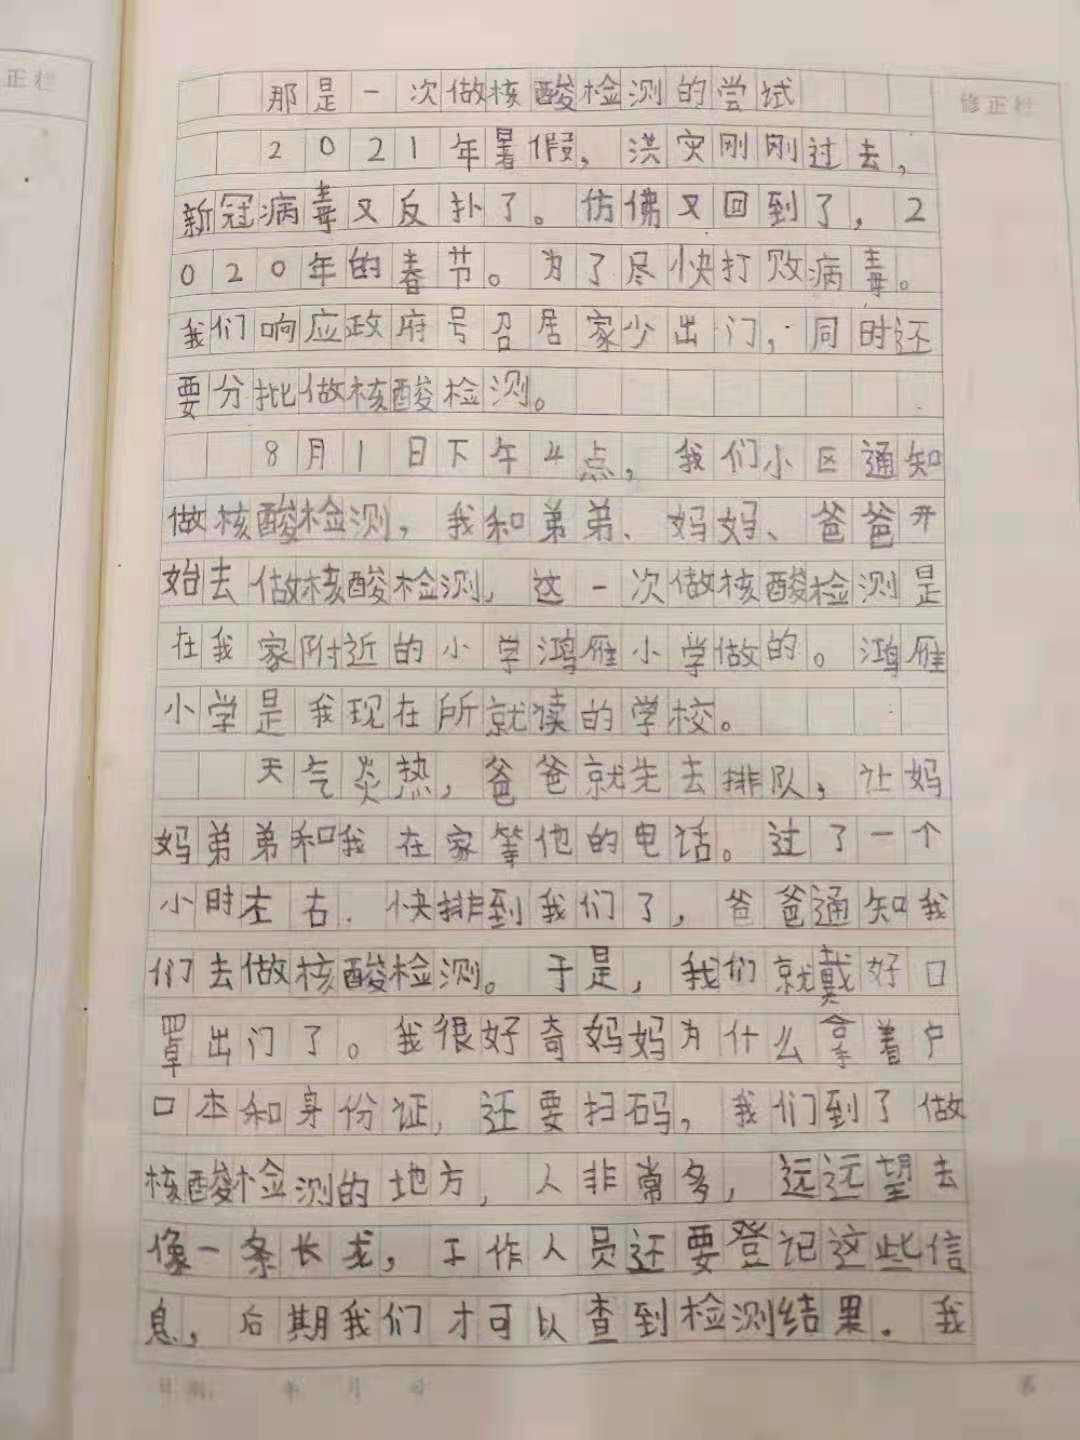 正栏
修正栏
那是一次做核酸检测的尝试
2021年暑假，洪灾刚刚过去，
新冠病毒又反扑了。仿佛又回到了，2
020年的春节。为了尽快打败病毒。
我们响应政府号召居家少出门，同时还
要分批做核酸检测。
8月1日下午4点，我们小区通知
做核酸检测，我和弟弟、妈妈、爸爸开
始去做核酸检测，这一次做核酸检测是
在我家附近的小学鸿雁小学做的。鸿雁
小学是我现在所就读的学校。
天气炎热，爸爸就先去排队，让妈
妈弟弟和我在家等他的电话。过了一个
小时左右．快排到我们了，爸爸通知我
们去做核酸检测。于是，我们就戴好口
罩出门了。我很好奇妈妈为什么拿着户
口本和身份证，还要扫码，我们到了做
核酸检测的地方，人非常多，远远望去
像一条长龙，工作人员还要登记这些信
息，后期我们才可以查到检测结果．我
日期：　年　月　日
第